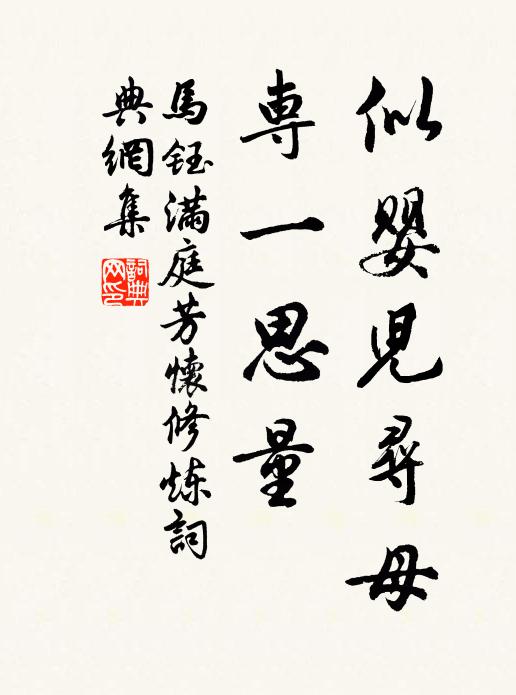 似嬰児尋母
専一思量
馬鈺滿庭芳懷修炼詞
典網集
詞典
网印